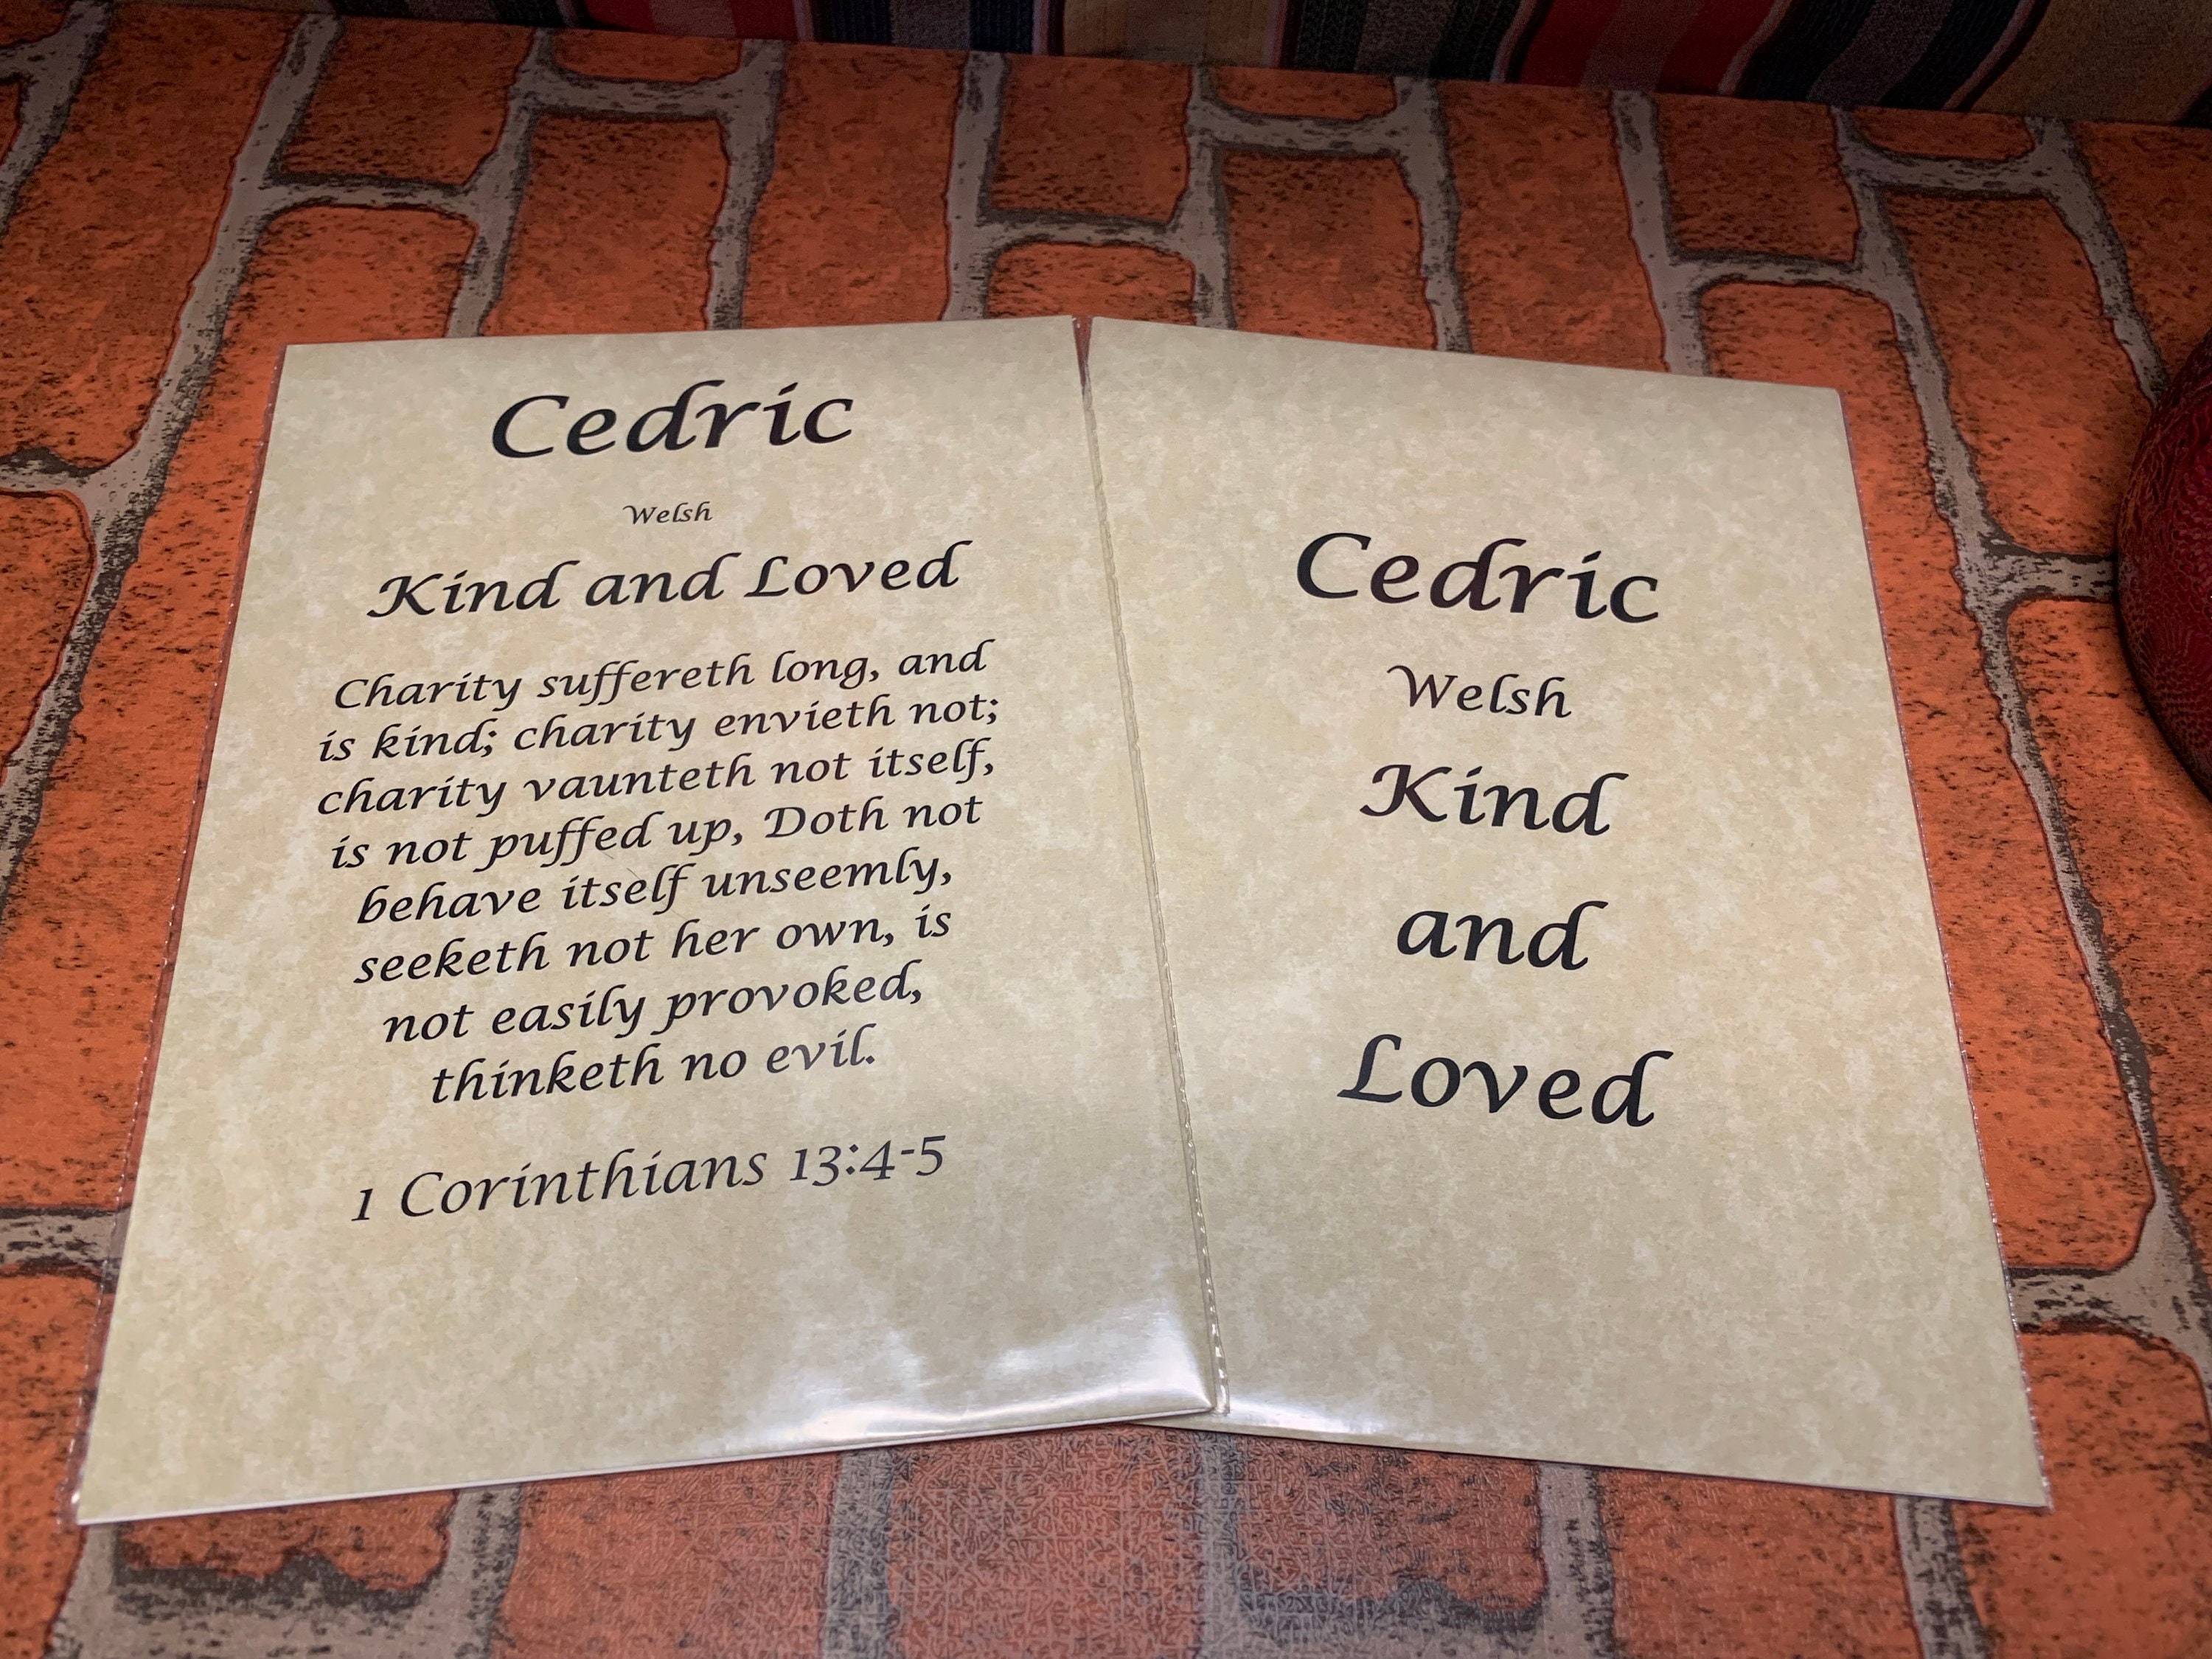 Cedric
Welsh
Kind and Loved
Charity suffereth long, and
is kind; charity envieth not;
charity vaunteth not itself,
is not puffed up, Doth not
behave itself unseemly,
seeketh not her own, is
not easily provoked,
thinketh no evil.
1 Corinthians 13:4-5
Cedric
Welsh
Kind
and
Loved